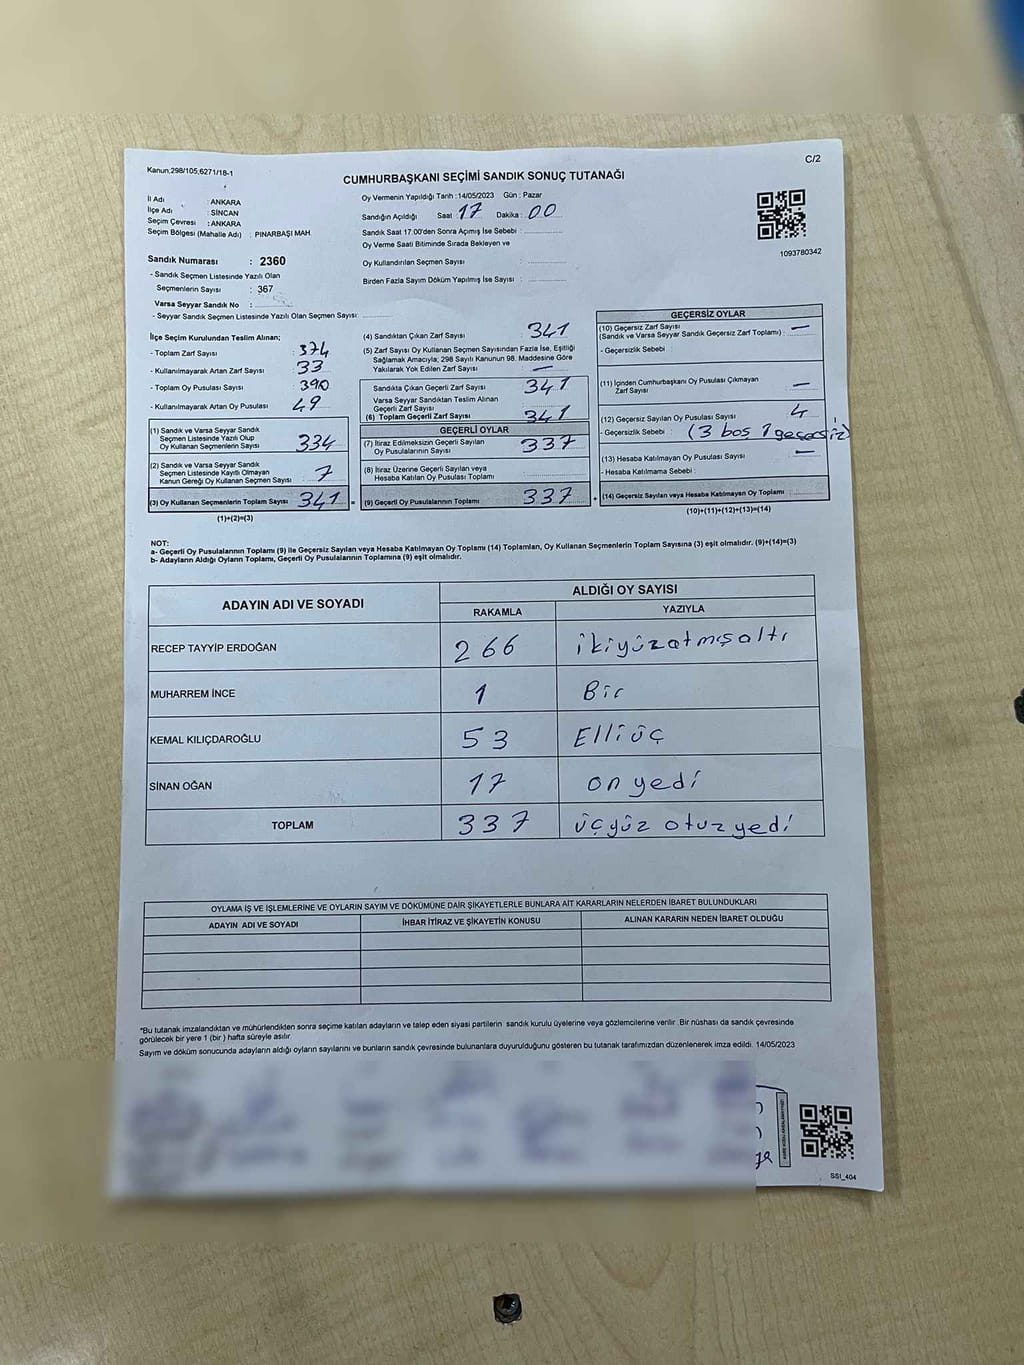 Kanun;298/105,6271/18-1
C/2
CUMHURBAŞKANI SEÇİMİ SANDIK SONUÇ TUTANAĞI
İl Adı : ANKARA
İlçe Adı : SİNCAN
Seçim Çevresi : ANKARA
Seçim Bölgesi (Mahalle Adı) : PINARBAŞI MAH.
Oy Vermenin Yapıldığı Tarih :14/05/2023 Gün : Pazar
Sandığın Açıldığı Saat 17 Dakika : 00
Sandık Saat 17.00'den Sonra Açımış İse Sebebi :
Oy Verme Saati Bitiminde Sırada Bekleyen ve
Oy Kullandırılan Seçmen Sayısı :
Birden Fazla Sayım Döküm Yapılmış İse Sayısı :
1093780342
Sandık Numarası : 2360
- Sandık Seçmen Listesinde Yazılı Olan
Seçmenlerin Sayısı : 367
Varsa Seyyar Sandık No :
- Seyyar Sandık Seçmen Listesinde Yazılı Olan Seçmen Sayısı:
İlçe Seçim Kurulundan Teslim Alınan;
- Toplam Zarf Sayısı : 374
- Kullanılmayarak Artan Zarf Sayısı : 33
- Toplam Oy Pusulası Sayısı : 390
- Kullanılmayarak Artan Oy Pusulası : 49
(1) Sandık ve Varsa Seyyar Sandık
Seçmen Listesinde Yazılı Olup
Oy Kullanan Seçmenlerin Sayısı : 334
(2) Sandık ve Varsa Seyyar Sandık
Seçmen Listesinde Kayıtlı Olmayan
Kanun Gereği Oy Kullanan Seçmen Sayısı : 7
(3) Oy Kullanan Seçmenlerin Toplam Sayısı : 341 =
(1)+(2)=(3)
(4) Sandıktan Çıkan Zarf Sayısı : 341
(5) Zarf Sayısı Oy Kullanan Seçmen Sayısından Fazla İse, Eşitliği
Sağlamak Amacıyla; 298 Sayılı Kanunun 98. Maddesine Göre
Yakılarak Yok Edilen Zarf Sayısı : —
Sandıkta Çıkan Geçerli Zarf Sayısı : 341
Varsa Seyyar Sandıktan Teslim Alınan
Geçerli Zarf Sayısı :
(6) Toplam Geçerli Zarf Sayısı : 341
GEÇERLİ OYLAR
(7) İtiraz Edilmeksizin Geçerli Sayılan
Oy Pusulalarının Sayısı : 337
(8) İtiraz Üzerine Geçerli Sayılan veya
Hesaba Katılan Oy Pusulası Toplamı :
(9) Geçerli Oy Pusulalarının Toplamı : 337 +
GEÇERSİZ OYLAR
(10) Geçersiz Zarf Sayısı
(Sandık ve Varsa Seyyar Sandık Geçersiz Zarf Toplamı) : —
- Geçersizlik Sebebi :
(11) İçinden Cumhurbaşkanı Oy Pusulası Çıkmayan
Zarf Sayısı : —
(12) Geçersiz Sayılan Oy Pusulası Sayısı : 4
- Geçersizlik Sebebi : (3 boş 1 geçersiz)
(13) Hesaba Katılmayan Oy Pusulası Sayısı : —
- Hesaba Katılmama Sebebi :
(14) Geçersiz Sayılan veya Hesaba Katılmayan Oy Toplamı :
(10)+(11)+(12)+(13)=(14)
NOT:
a- Geçerli Oy Pusulalarının Toplamı (9) ile Geçersiz Sayılan veya Hesaba Katılmayan Oy Toplamı (14) Toplamları, Oy Kullanan Seçmenlerin Toplam Sayısına (3) eşit olmalıdır. (9)+(14)=(3)
b- Adayların Aldığı Oyların Toplamı, Geçerli Oy Pusulalarının Toplamına (9) eşit olmalıdır.
ADAYIN ADI VE SOYADI
ALDIĞI OY SAYISI
RAKAMLA YAZIYLA
RECEP TAYYİP ERDOĞAN 266 ikiyüzatmışaltı
MUHARREM İNCE 1 Bir
KEMAL KILIÇDAROĞLU 53 Elliüç
SİNAN OĞAN 17 on yedi
TOPLAM 337 üçyüz otuz yedi
OYLAMA İŞ VE İŞLEMLERİNE VE OYLARIN SAYIM VE DÖKÜMÜNE DAİR ŞİKAYETLERLE BUNLARA AİT KARARLARIN NELERDEN İBARET BULUNDUKLARI
ADAYIN ADI VE SOYADI İHBAR İTİRAZ VE ŞİKAYETİN KONUSU ALINAN KARARIN NEDEN İBARET OLDUĞU
*Bu tutanak imzalandıktan ve mühürlendikten sonra seçime katılan adayların ve talep eden siyasi partilerin sandık kurulu üyelerine veya gözlemcilerine verilir .Bir nüshası da sandık çevresinde
görülecek bir yere 1 (bir ) hafta süreyle asılır.
Sayım ve döküm sonucunda adayların aldığı oyların sayılarını ve bunların sandık çevresinde bulunanlara duyurulduğunu gösteren bu tutanak tarafımızdan düzenlenerek imza edildi. 14/05/2023
SSI_404